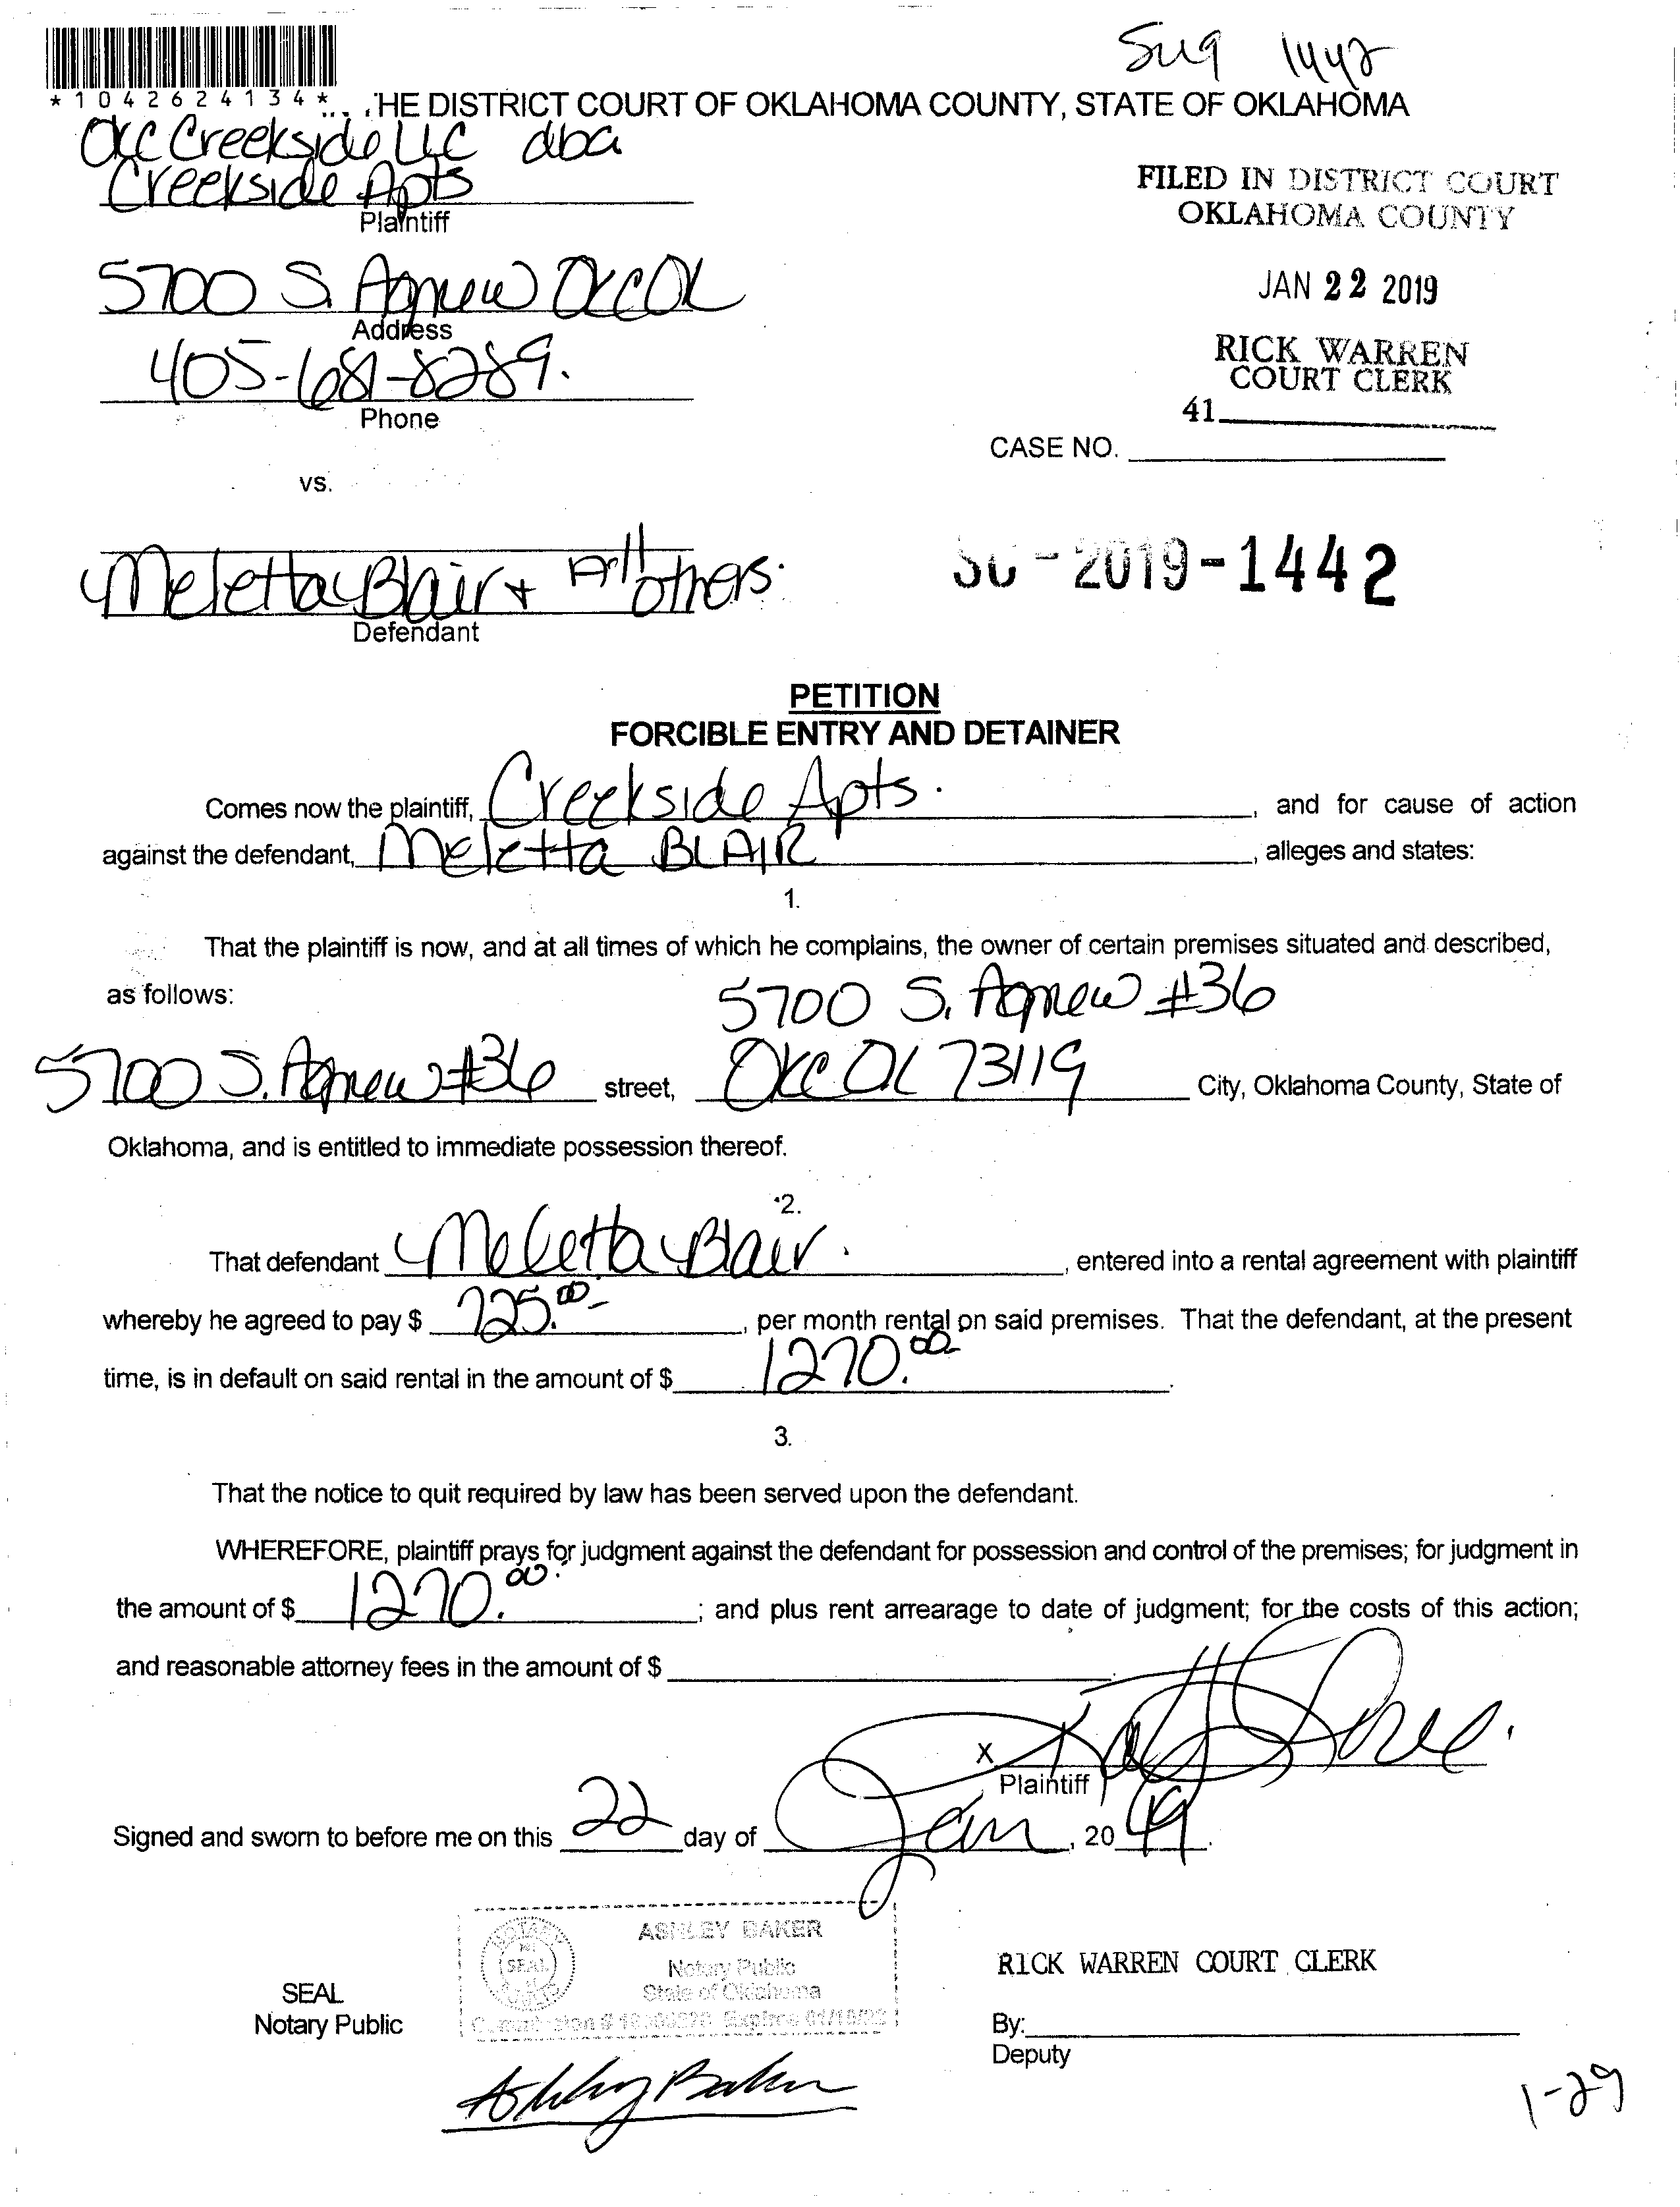 Sug 1442
*1042624134*
THE DISTRICT COURT OF OKLAHOMA COUNTY, STATE OF OKLAHOMA
OKC Creekside LLC dba
Creekside Apts
Plaintiff
FILED IN DISTRICT COURT
OKLAHOMA COUNTY
JAN 22 2019
RICK WARREN
COURT CLERK
41
5700 S. Agnew OKC OK
Address
405-681-8289.
Phone
CASE NO.
vs.
Meletta Blair + All others.
Defendant
SC-2019-1442
PETITION
FORCIBLE ENTRY AND DETAINER
Comes now the plaintiff, Creekside Apts. , and for cause of action
against the defendant, Meletta BLAIR , alleges and states:
1.
That the plaintiff is now, and at all times of which he complains, the owner of certain premises situated and described,
as follows:
5700 S. Agnew #36
5700 S. Agnew #36 street, OKC OK 73119 City, Oklahoma County, State of
Oklahoma, and is entitled to immediate possession thereof.
2.
That defendant Meletta Blair. , entered into a rental agreement with plaintiff
whereby he agreed to pay $ 725.00 , per month rental on said premises. That the defendant, at the present
time, is in default on said rental in the amount of $ 1270.00 .
3.
That the notice to quit required by law has been served upon the defendant.
WHEREFORE, plaintiff prays for judgment against the defendant for possession and control of the premises; for judgment in
the amount of $ 1270.00 ; and plus rent arrearage to date of judgment; for the costs of this action;
and reasonable attorney fees in the amount of $ .
X
Plaintiff
Signed and sworn to before me on this 22 day of Jan , 20 19 .
ASHLEY BAKER
Notary Public
State of Oklahoma
SEAL
Notary Public
Ashley Baker
RICK WARREN COURT CLERK
By:
Deputy
1-29